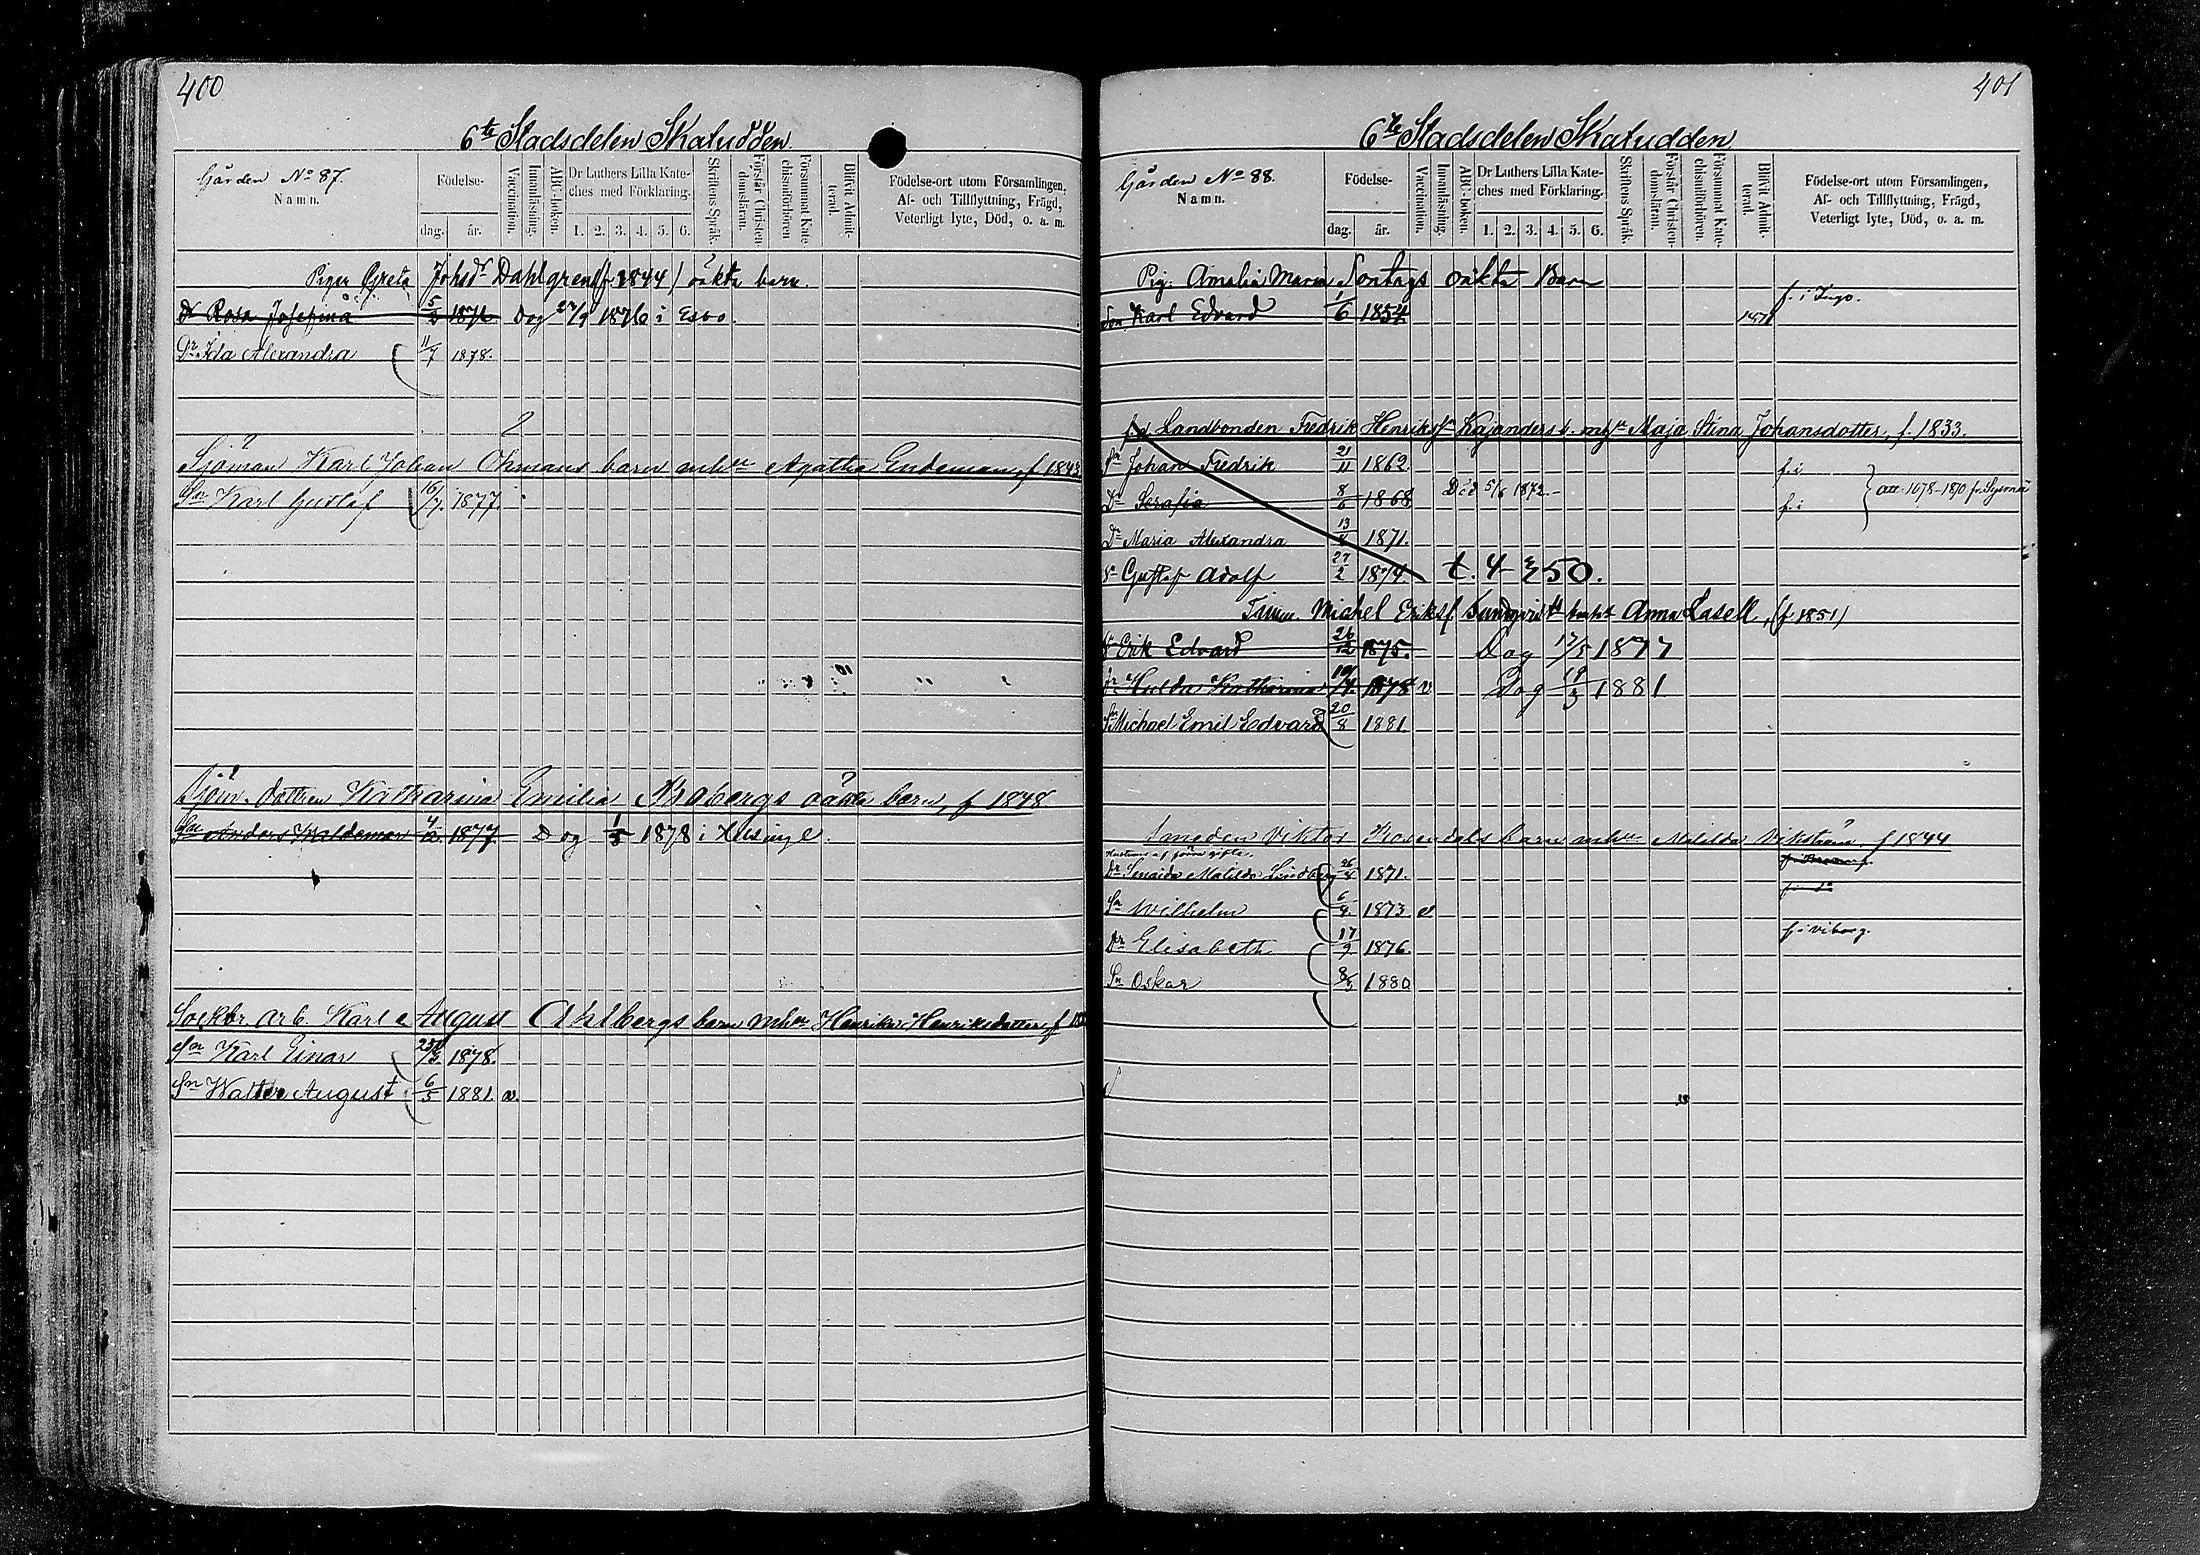 400
6te Stadsdelen Skatudden
Gården No 87.
Namn.
Födelse-
dag.
år.
Vaccination.
Innanläsning.
ABC-boken.
Dr Luthers Lilla Kate-
ches med Förklaring.
1. 2. 3. 4. 5. 6.
Skriftens Språk.
Förstår Christen-
domsläran.
Försummat Kate-
chismiförhören
Blifvit Admit-
terad.
Födelse-ort utom Församlingen,
Af- och Tillflyttning, Frägd,
Veterligt lyte, Död, o. a. m.
Pigan Greta Johsdr Dahlgrens (f 1844) oäkta barn.
Dr Rosa Josefina 1876 Dog 27/9 1876 i Esbo.
Dr Ida Alexandra 11/7 1878.
Sjöman Karl Johan Öhmans barn mhu Agatha Endeman, f 1843
Sn Karl Gustaf 16/7 1877.
Sjöm. dottren Katharina Emilia Mobergs oäkta barn, f 1848
Sn Anders Waldemar 4/12 1877 Dog 1/8 1878 i Helsinge.
Sockbr. arb. Karl August Ahlbergs barn mhu Henrika Henriksdotter, f
Sn Karl Einar 1878.
Sn Walter August 6/5 1881. v.
401
6te Stadsdelen Skatudden
Gården No 88.
Namn.
Födelse-
dag.
år.
Vaccination.
Innanläsning.
ABC-boken.
Dr Luthers Lilla Kate-
ches med Förklaring.
1. 2. 3. 4. 5. 6.
Skriftens Språk.
Förstår Christen-
domsläran.
Försummat Kate-
chismiförhören.
Blifvit Admit-
terad.
Födelse-ort utom Församlingen,
Af- och Tillflyttning, Frägd,
Veterligt lyte, Död, o. a. m.
Pig. Amalia Maria Sontags oäkta Barn
Son Karl Edvard 1/6 1854 1871 f. i Ingo.
fd Landbonden Fredrik Henrikss Kajanders b. mhu Maja Stina Johansdotter, f. 1833.
Sn Johan Fredrik 21/11 1862 f. i
Dr Serafia 8/6 1868 Död 5/6 1872. f. i
Dr Maria Alexandra 1871.
Sn Gustaf Adolf 27/2 1874. t. 4 350.
Timm. Michel Erikss. Sundqvist b mhu Anna Lasell, (f 1851)
Sn Erik Edvard 26/12 1875. Dog 17/5 1877
Dr Hulda Katharina 1878 v Dog 19/3 1881
Sn Michael Emil Edvard 20/8 1881.
Smeden Viktor Rosendals barn mhu Matilda Vikström f 1844
Hustruns af förra gifte.
Dr Senaida Matilda Lindberg 26/4 1871.
Sn Wilhelm 6/4 1873 v
Dr Elisabeth 17/9 1876. f. i Viborg.
Sn Oskar 8/3 1880